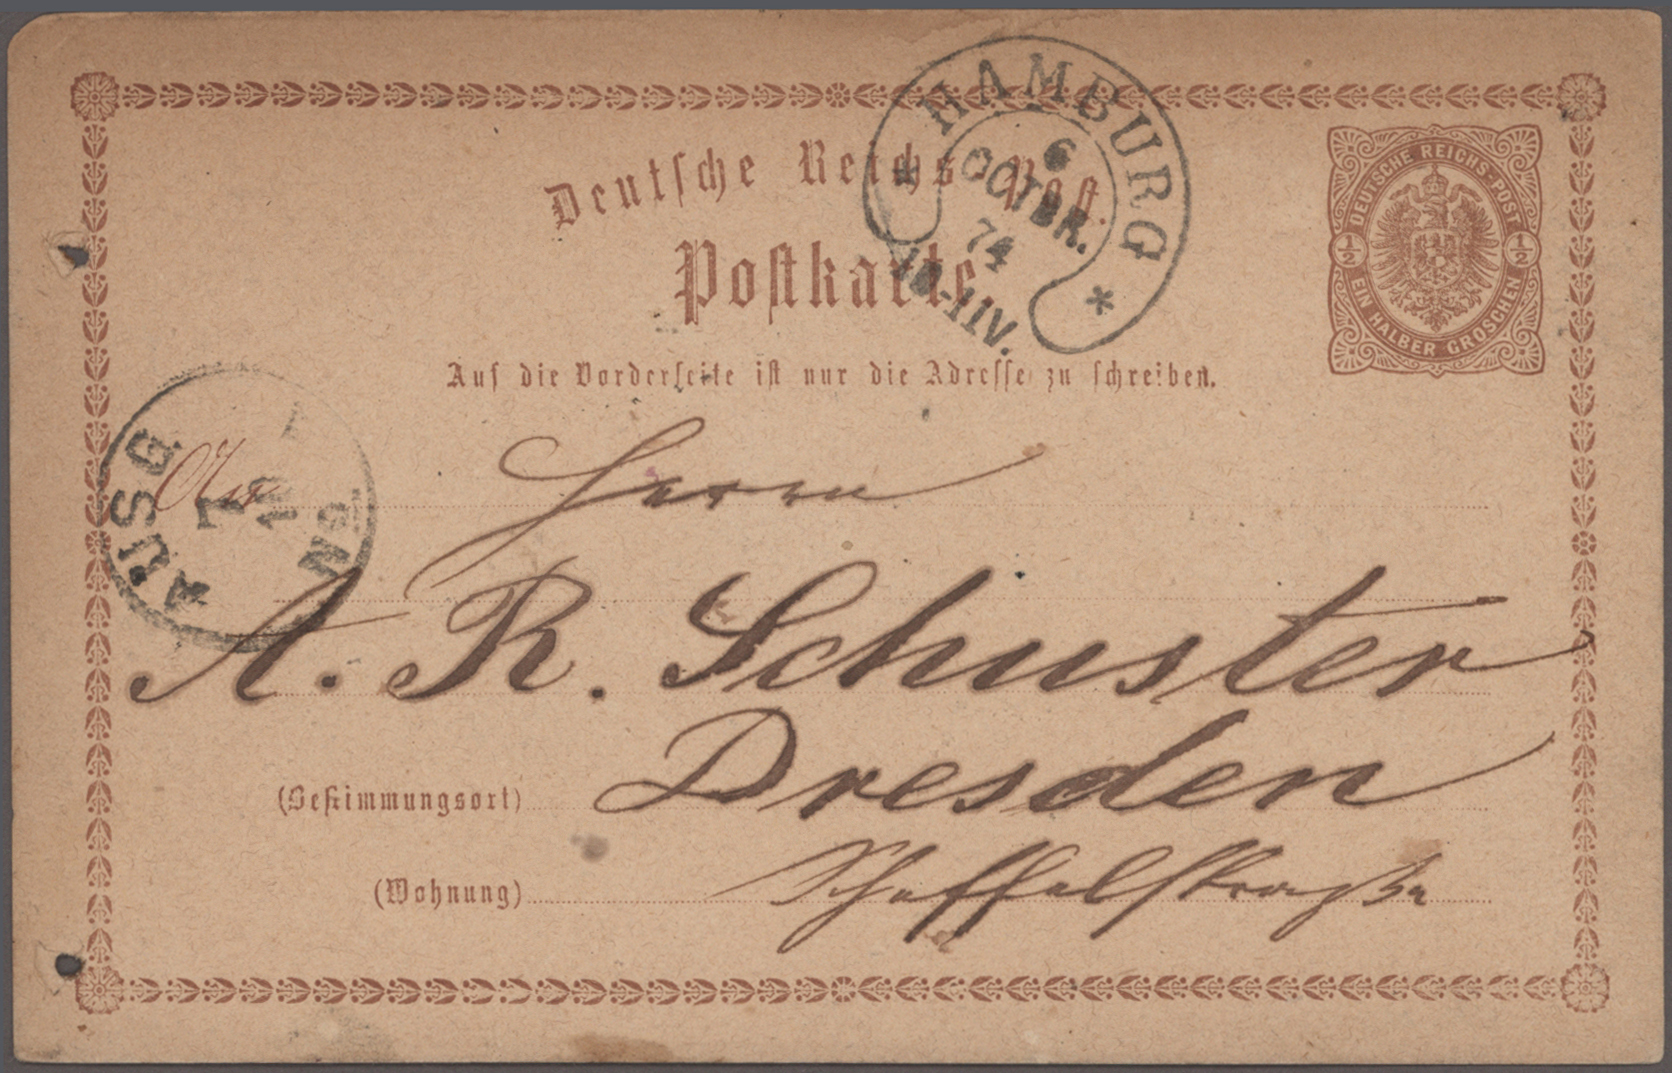 Deutsche Reichs-Post.
Postkarte
Auf die Vorderseite ist nur die Adresse zu schreiben.
HAMBURG
6
OCTBR.
74
10-11V.
DEUTSCHE REICHS-POST
1/2 1/2
EIN HALBER GROSCHEN
AUSG
7
10
No
An Herrn
A. R. Schuster
(Bestimmungsort) Dresden
(Wohnung) Scheffelstraße